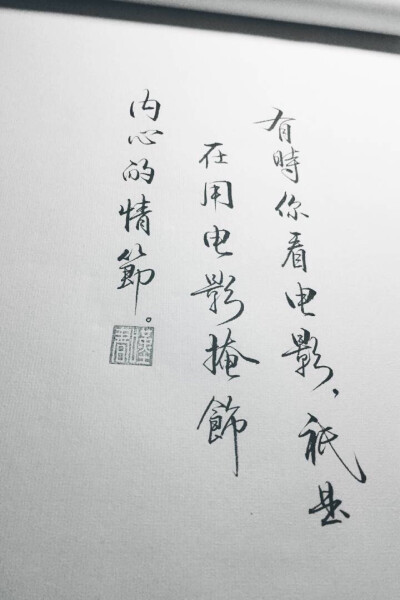 有時你看电影，祇是
在用电影掩飾
内心的情節。